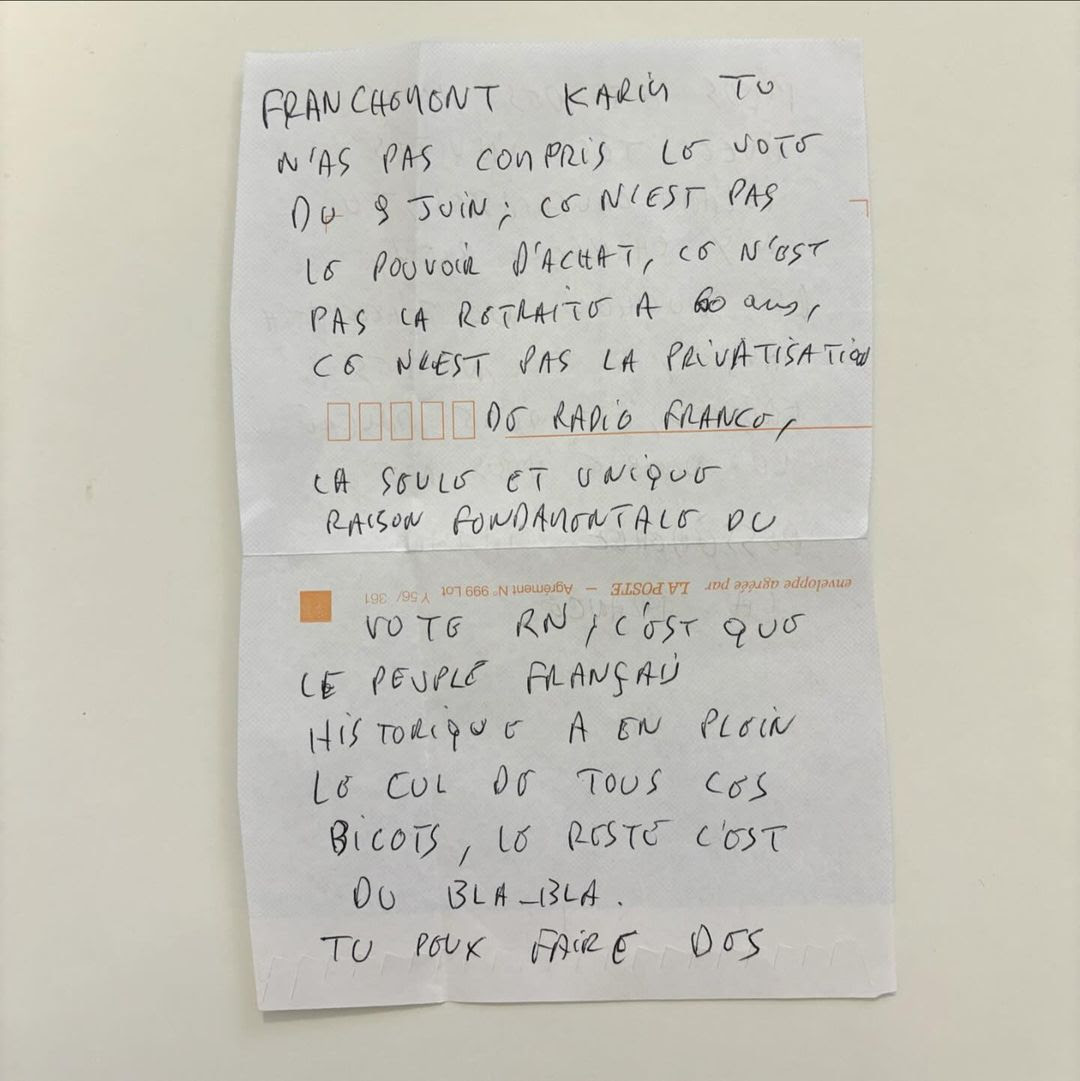 FRANCHEMENT KARIM TU
N'AS PAS COMPRIS LE VOTE
DU 9 JUIN ; CE N'EST PAS
LE POUVOIR D'ACHAT, CE N'EST
PAS LA RETRAITE A 60 ans,
CE N'EST PAS LA PRIVATISATION
DE RADIO FRANCE,
LA SEULE ET UNIQUE
RAISON FONDAMENTALE DU
enveloppe agréée par LA POSTE – Agrément N° 999 Lot Y 56/ 361
VOTE RN ; C'EST QUE
LE PEUPLE FRANÇAIS
HISTORIQUE A EN PLEIN
LE CUL DE TOUS CES
BICOTS, LE RESTE C'EST
DU BLA-BLA.
TU PEUX FAIRE DES